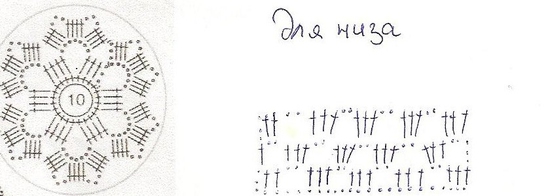 Для низа
10